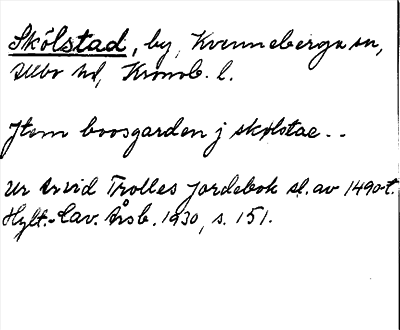 Skölstad, by, Kvenneberga sn,
Allbo hd, Kronob. l.
Jtem boosgarden j skølstae..
Ur Arvid Trolles jordebok sl. av 1490-t.
Hylt.-Cav. Årsb. 1930, s. 151.